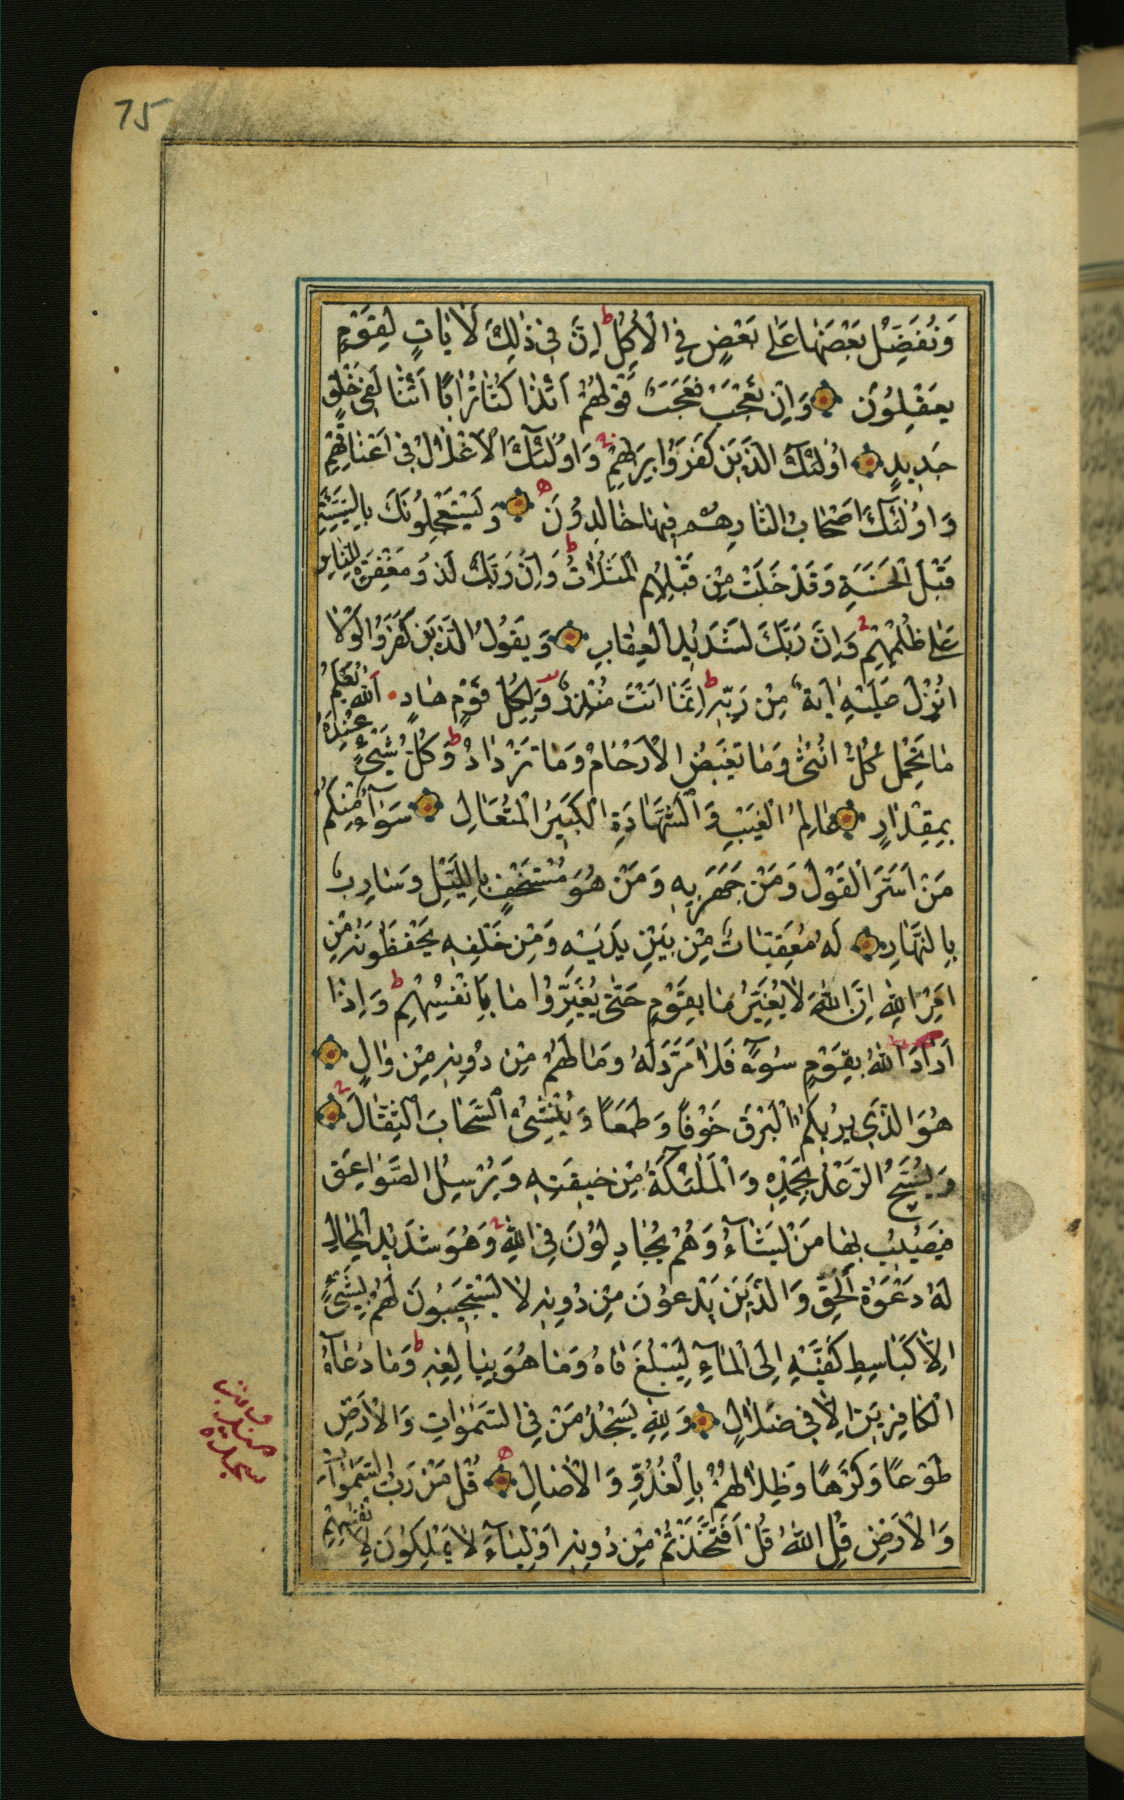 75
وَنُفَضِّلُ بَعْضَهَا عَلٰى بَعْضٍ فِي الْاُكُلِ ط اِنَّ فِي ذٰلِكَ لَاٰيَاتٍ لِقَوْمٍ
يَعْقِلُوُنَ وَاِنْ تَعْجَبْ فَعَجَبٌ قَوْلُهُمْ ءَاِذَا كُنَّا تُرَابًا اَئِنَّا لَفِي خَلْقٍ
جَدِيدٍ اُولٰئِكَ الَّذِينَ كَفَرُوا بِرَبِّهِمْ وَاُولٰئِكَ الْاَغْلَالُ فِي اَعْنَاقِهِمْ
وَاُولٰئِكَ اَصْحَابُ النَّارِ هُمْ فِيهَا خَالِدُونَ وَيَسْتَعْجِلُونَكَ بِالسَّيِّئَةِ
قَبْلَ الْحَسَنَةِ وَقَدْ خَلَتْ مِنْ قَبْلِهِمُ الْمَثُلَاتُ ط وَاِنَّ رَبَّكَ لَذُو مَغْفِرَةٍ لِلنَّاسِ
عَلٰى ظُلْمِهِمْ وَاِنَّ رَبَّكَ لَشَدِيدُ الْعِقَابِ وَيَقُولُ الَّذِينَ كَفَرُوا لَوْلَا
اُنْزِلَ عَلَيْهِ اٰيَةٌ مِنْ رَبِّهِ ط اِنَّمَا اَنْتَ مُنْذِرٌ وَلِكُلِّ قَوْمٍ هَادٍ اَللّٰهُ يَعْلَمُ
مَا تَحْمِلُ كُلُّ اُنْثٰى وَمَا تَغِيضُ الْاَرْحَامُ وَمَا تَزْدَادُ ط وَكُلُّ شَيْءٍ عِنْدَهُ
بِمِقْدَارٍ عَالِمُ الْغَيْبِ وَالشَّهَادَةِ الْكَبِيرُ الْمُتَعَالِ سَوَاءٌ مِنْكُمْ
مَنْ اَسَرَّ الْقَوْلَ وَمَنْ جَهَرَ بِهِ وَمَنْ هُوَ مُسْتَخْفٍ بِاللَّيْلِ وَسَارِبٌ
بِالنَّهَارِ لَهُ مُعَقِّبَاتٌ مِنْ بَيْنِ يَدَيْهِ وَمِنْ خَلْفِهِ يَحْفَظُونَهُ مِنْ
اَمْرِ اللّٰهِ اِنَّ اللّٰهَ لَا يُغَيِّرُ مَا بِقَوْمٍ حَتّٰى يُغَيِّرُوا مَا بِاَنْفُسِهِمْ ط وَاِذَا
اَرَادَ اللّٰهُ بِقَوْمٍ سُوءًا فَلَا مَرَدَّ لَهُ وَمَا لَهُمْ مِنْ دُونِهِ مِنْ وَالٍ
هُوَ الَّذِي يُرِيكُمُ الْبَرْقَ خَوْفًا وَطَمَعًا وَيُنْشِئُ السَّحَابَ الثِّقَالَ
وَيُسَبِّحُ الرَّعْدُ بِحَمْدِهِ وَالْمَلٰئِكَةُ مِنْ خِيفَتِهِ وَيُرْسِلُ الصَّوَاعِقَ
فَيُصِيبُ بِهَا مَنْ يَشَاءُ وَهُمْ يُجَادِلُونَ فِي اللّٰهِ وَهُوَ شَدِيدُ الْمِحَالِ
لَهُ دَعْوَةُ الْحَقِّ وَالَّذِينَ يَدْعُونَ مِنْ دُونِهِ لَا يَسْتَجِيبُونَ لَهُمْ بِشَيْءٍ
اِلَّا كَبَاسِطِ كَفَّيْهِ اِلَى الْمَاءِ لِيَبْلُغَ فَاهُ وَمَا هُوَ بِبَالِغِهِ ط وَمَا دُعَاءُ
الْكَافِرِينَ اِلَّا فِي ضَلَالٍ وَلِلّٰهِ يَسْجُدُ مَنْ فِي السَّمٰوَاتِ وَالْاَرْضِ
طَوْعًا وَكَرْهًا وَظِلَالُهُمْ بِالْغُدُوِّ وَالْاٰصَالِ قُلْ مَنْ رَبُّ السَّمٰوَاتِ
وَالْاَرْضِ قُلِ اللّٰهُ قُلْ اَفَاتَّخَذْتُمْ مِنْ دُونِهِ اَوْلِيَاءَ لَا يَمْلِكُونَ لِاَنْفُسِهِمْ
سجده